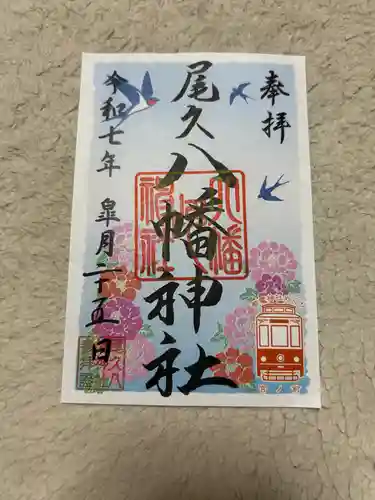 奉拝
尾久八幡神社
令和七年 皐月二十五日
八幡
神社
宮ノ前